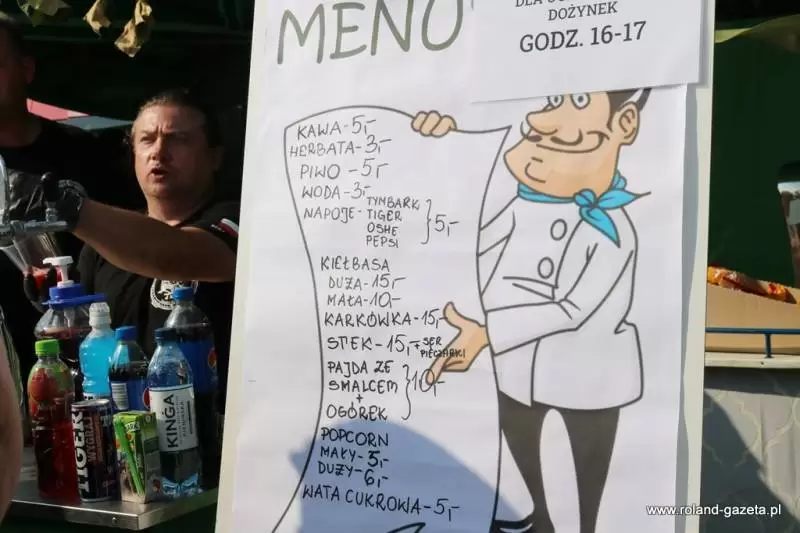 MENU
DOŻYNEK
GODZ. 16-17
KAWA-5,-
HERBATA-3,-
PIWO-5,-
WODA-3,-
NAPOJE-TYMBARK
TIGER
OSHE
PEPSI
5,-
KIEŁBASA
DUŻA-15,-
MAŁA-10,-
KARKÓWKA-15,-
STEK-15,-+SER
PIECZARKI
PAJDA ZE
SMALCEM
+
OGÓREK
10,-
POPCORN
MAŁY-5,-
DUŻY-6,-
WATA CUKROWA-5,-
TIGER
KINGA
www.roland-gazeta.pl